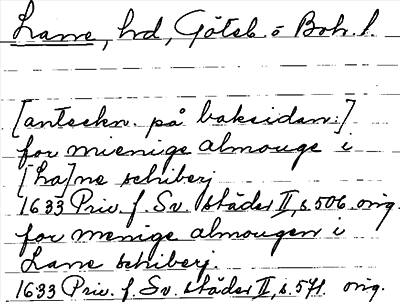 Lane, hd, Göteb. o Boh. l.
[anteckn. på baksidan:]
for mienige almouge i
[ha]ne schiberj
1633 Priv. f. Sv. städer II, s. 506. orig.
for menige almougen i
Lane schiberj
1633 Priv. f. Sv. städer II, s. 571. orig.